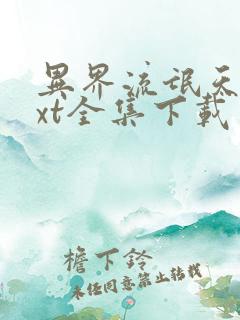 異界流氓天
xt全集下載
檐下鈴
未经同意禁止转载